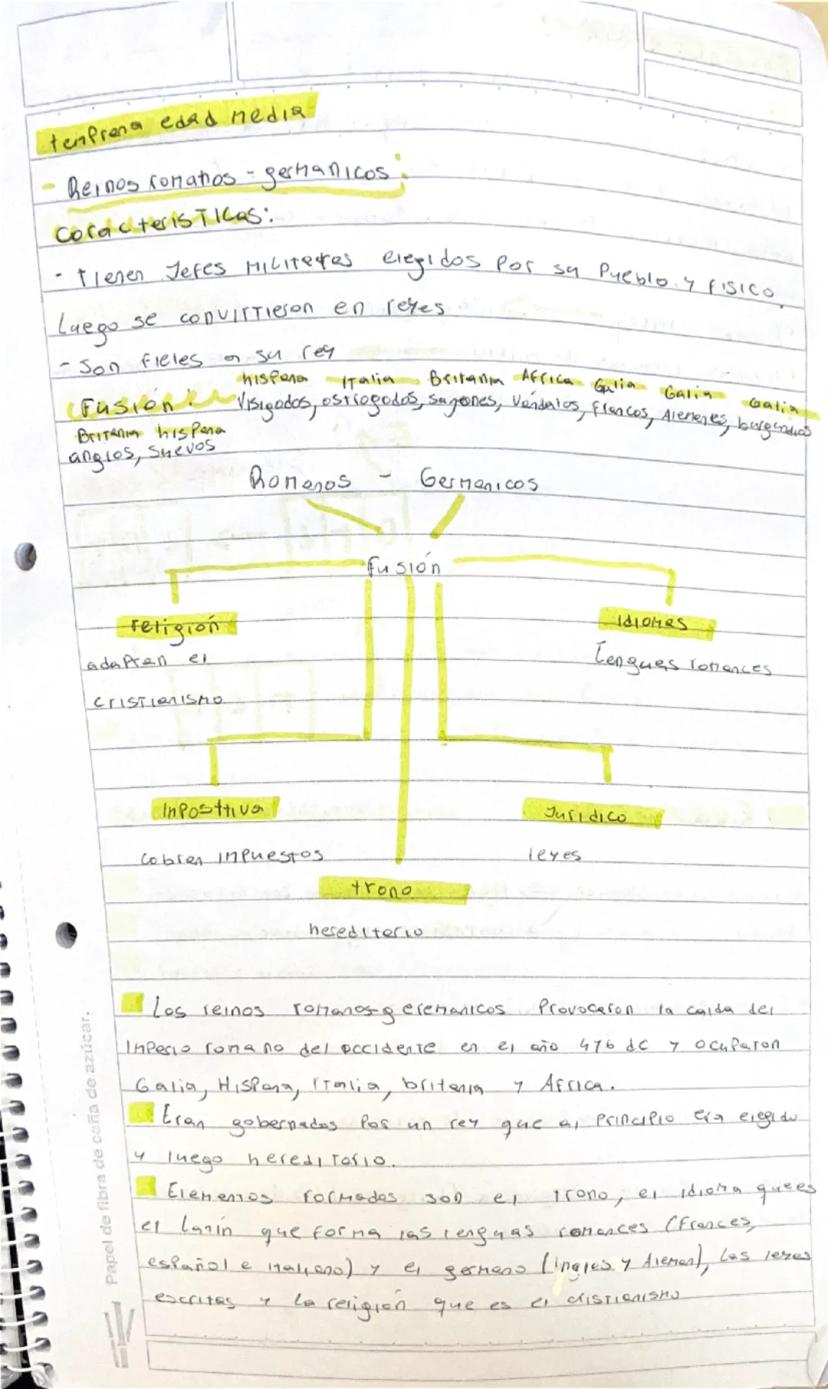 temprana edad media
- Reinos romanos - germanicos:
Caracteristicas:
- Tienen Jefes militares elegidos por su pueblo y fisico
Luego se convirtieron en reyes
- Son fieles a su rey
hispana Italia Britania Africa Galia Galia Galia
Fusión: Visigodos, ostrogodos, sajones, Vándalos, francos, Alemanes, burgundios
Britania hispana
anglos, suevos
Romanos - Germanicos
fusión
religión
Idiomas
adaptan el
Lenguas romances
cristianismo
Impositiva
Juridico
cobran impuestos
leyes
trono
hereditario
Los reinos romanos-geremanicos Provocaron la caida del
Imperio romano del occidente en el año 476 dC y ocuparon
Galia, Hispana, Italia, britania y Africa.
Eran gobernados Por un rey que al principio era elegido
y luego hereditario.
Elementos formados son el trono, el idioma que es
el Latín que forma las lenguas romances (Frances,
español e italiano) y el germano (ingles y Aleman), las leyes
escritas y la religión que es el cristianismo
Papel de fibra de caña de azúcar.